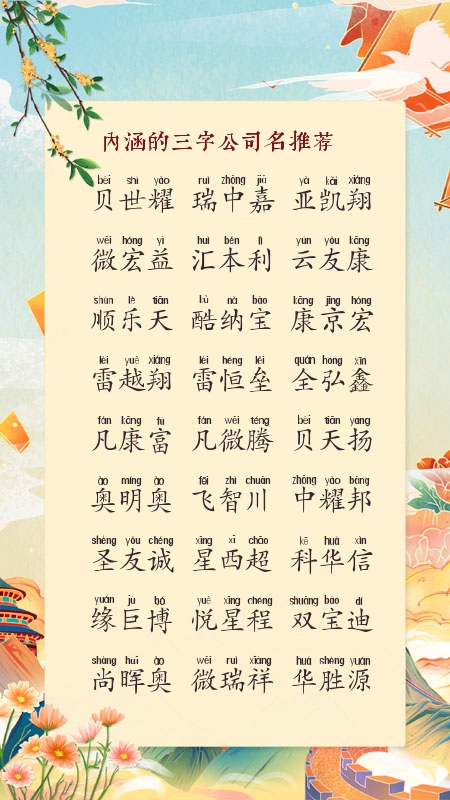 内涵的三字公司名推荐
bèi shì yào ruì zhōng jiā yà kǎi xiáng
贝世耀 瑞中嘉 亚凯翔
wēi hóng yì huì běn lì yún yǒu kāng
微宏益 汇本利 云友康
shùn lè tiān kù nà bǎo kāng jīng hóng
顺乐天 酷纳宝 康京宏
léi yuè xiáng léi héng lěi quán hóng xīn
雷越翔 雷恒垒 全弘鑫
fán kāng fù fán wēi téng bèi tiān yáng
凡康富 凡微腾 贝天扬
ào míng ào fēi zhì chuān zhōng yào bāng
奥明奥 飞智川 中耀邦
shèng yǒu chéng xīng xī chāo kē huá xìn
圣友诚 星西超 科华信
yuán jù bó yuè xīng chéng shuāng bǎo dí
缘巨博 悦星程 双宝迪
shàng huī ào wēi ruì xiáng huá shèng yuán
尚晖奥 微瑞祥 华胜源